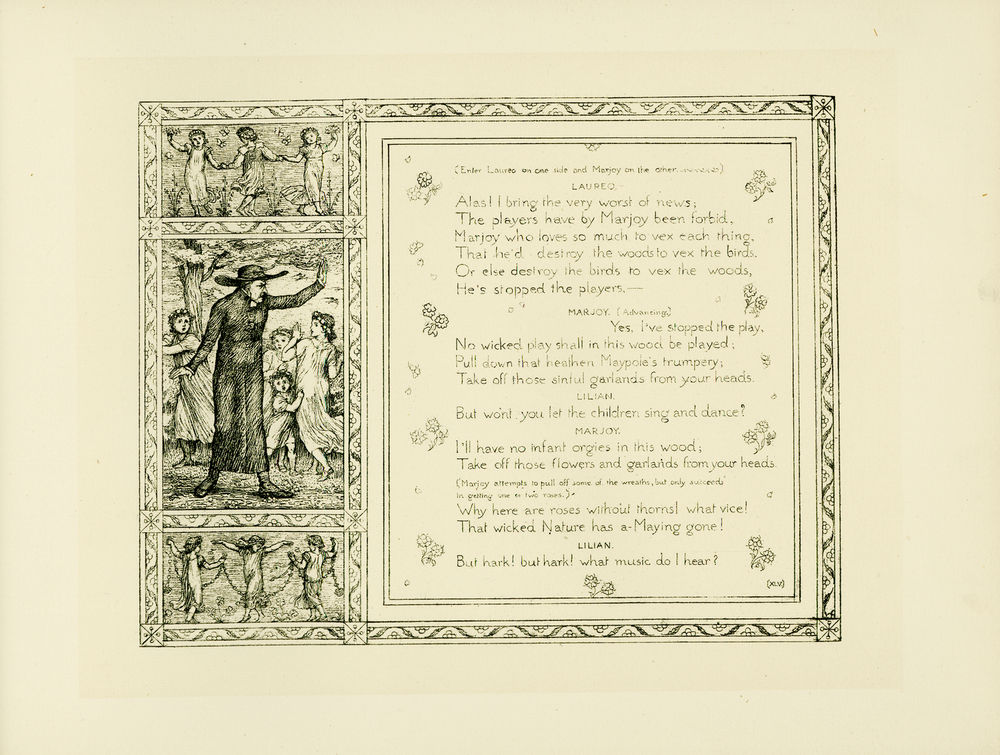 (Enter Laureo on one side and Marjoy on the other.
LAUREO.—
Alas! I bring the very worst of news;
The players have by Marjoy been forbid,
Marjoy who loves so much to vex each thing,
That he'd destroy the woods to vex the birds,
Or else destroy the birds to vex the woods,
He's stopped the players,—
MARJOY. (Advancing)
Yes, I've stopped the play,
No wicked play shall in this wood be played;
Pull down that heathen Maypole's trumpery;
Take off those sinful garlands from your heads.
LILIAN.
But wont you let the children sing and dance?
MARJOY.
I'll have no infant orgies in this wood;
Take off those flowers and garlands from your heads.
(Marjoy attempts to pull off some of the wreaths, but only succeeds
in getting one or two roses.)
Why here are roses without thorns! what vice!
That wicked Nature has a-Maying gone!
LILIAN.
But hark! but hark! what music do I hear?
(XLV)